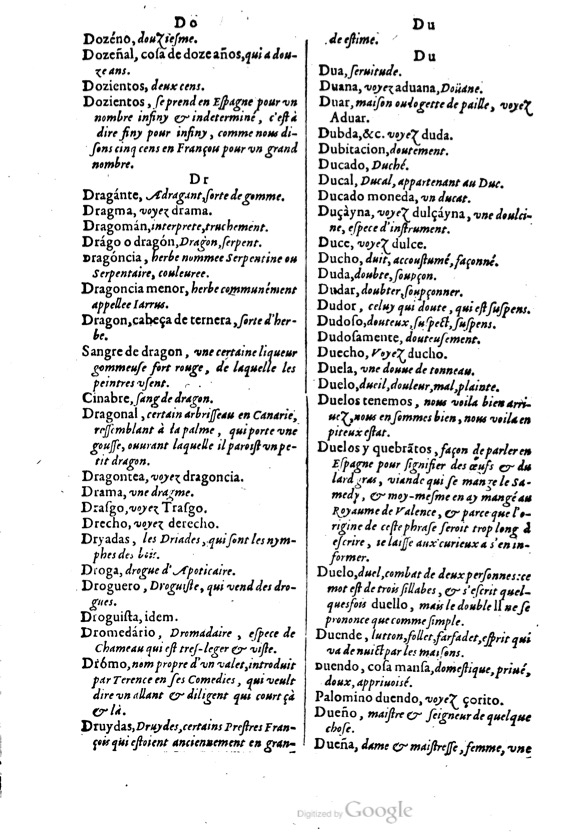 Do
Dozéno, douZiesme.
Dozeñal, cosa de doze años, qui a dou-
ze ans.
Dozientos, deux cens.
Dozientos, se prend en Espagne pour vn
nombre infiny & indeterminé, c'est à
dire finy pour infiny, comme nous di-
sons cinq cens en François pour vn grand
nombre.
Dr
Dragánte, Adragant, sorte de gomme.
Dragma, voyez drama.
Dragomán, interprete, truchement.
Drágo o dragón, Dragon, serpent.
Dragóncia, herbe nommee Serpentine ou
Serpentaire, couleuree.
Dragoncia menor, herbe communément
appellee Iarrus.
Dragon, cabeça de ternera, sorte d'her-
be.
Sangre de dragon, vne certaine liqueur
gommeuse fort rouge, de laquelle les
peintres vsent.
Cinabre, sang de dragon.
Dragonal, certain arbrisseau en Canarie,
ressemblant à la palme, qui porte vne
gousse, ouurant laquelle il paroist vn pe-
tit dragon.
Dragontea, voyez dragoncia.
Drama, vne dragme.
Drasgo, voyez Trasgo.
Drecho, voyez derecho.
Dryadas, les Driades, qui sont les nym-
phes des bois.
Droga, drogue d'Apoticaire.
Droguero, Droguiste, qui vend des dro-
gues.
Droguista, idem.
Dromedário, Dromadaire, espece de
Chameau qui est tres-leger & viste.
Drómo, nom propre d'vn vales, introduit
par Terence en ses Comedies, qui veult
dire vn allant & diligent qui court çà
& là.
Druydas, Druydes, certains Prestres Fran-
çois qui estoient anciennement en gran-
Du
de estime.
Du
Dua, seruitude.
Duana, voyez aduana, Doüane.
Duar, maison ou logette de paille, voyeZ
Aduar.
Dubda, &c. voyeZ duda.
Dubitacion, doutement.
Ducado, Duché.
Ducal, Ducal, appartenant au Duc.
Ducado moneda, vn ducat.
Duçàyna, voyeZ dulçáyna, vne doulci-
ne, espece d'instrument.
Duce, voyeZ dulce.
Ducho, duit, accoustumé, façonné.
Duda, doubte, soupçon.
Dudar, doubter, soupçonner.
Dudor, celuy qui doute, qui est suspens.
Dudoso, douteux, suspect, suspens.
Dudosamente, douteusement.
Duecho, VoyeZ ducho.
Duela, vne douue de tonneau.
Duelo, dueil, douleur, mal, plainte.
Duelos tenemos, nous voila bien arri-
ueZ, nous en sommes bien, nous voila en
piteux estat.
Duelos y quebrãtos, façon de parler en
Espagne pour signifier des œufs & du
lard gras, viande qui se mange le Sa-
medy, & moy-mesme en ay mangé au
Royaume de Valence, & parce que l'o-
rigine de ceste phrase seroit trop long à
escrire, se laisse aux curieux a s'en in-
former.
Duelo, duel, combat de deux personnes: ce
mot est de trois sillabes, & s'escrit quel-
quesfois duello, mais le double ll ne se
prononce que comme simple.
Duende, lutton, follet, farfadet, esprit qui
va de nuict par les maisons.
Duendo, cosa mansa, domestique, priué,
doux, appriuoisé.
Palomino duendo, voyeZ çorito.
Dueño, maistre & seigneur de quelque
chose.
Dueña, dame & maistresse, femme, vne
Digitized by Google